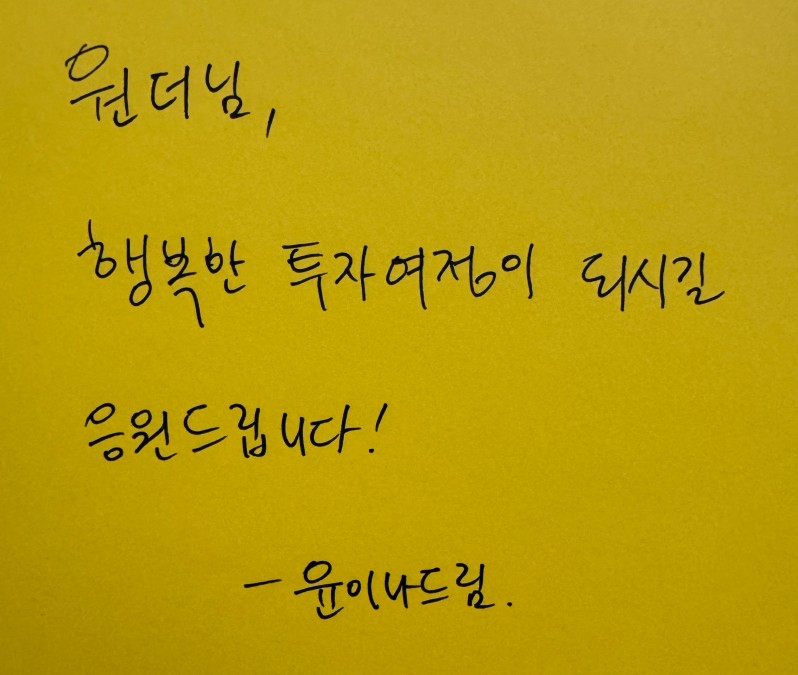 원더님,
행복한 투자여정이 되시길
응원드립니다!
- 윤이나드림.